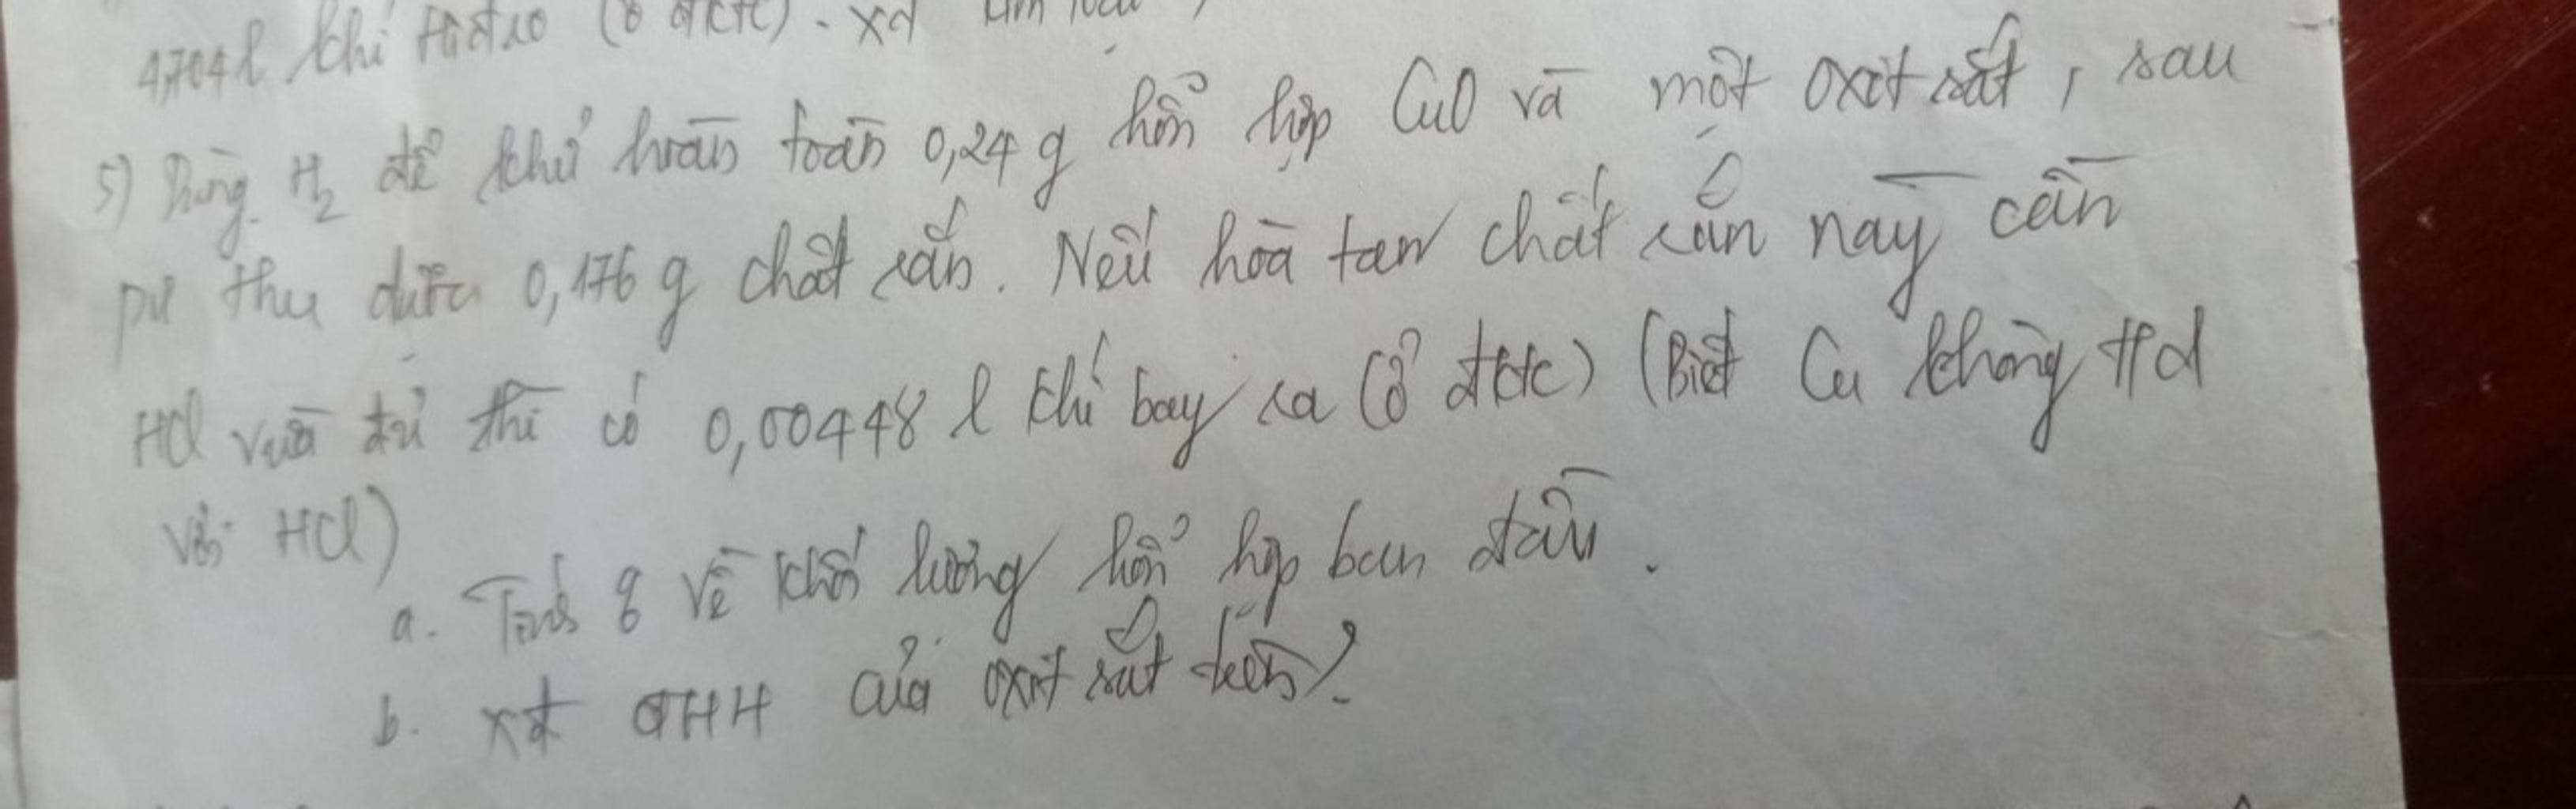 4,704l khí Hiđrô (ở đktc). Xđ kim loại
5) Dùng H2 để khử hoàn toàn 0,24 g hỗn hợp CuO và một oxit sắt, sau
pư thu được 0,176 g chất rắn. Nếu hoà tan chất rắn này cần
HCl vừa đủ thì có 0,00448 l khí bay ra (ở đktc) (Biết Cu không tác
với HCl)
a. Tính % về khối lượng hỗn hợp ban đầu.
b. Xđ CTHH của oxit sắt trên?